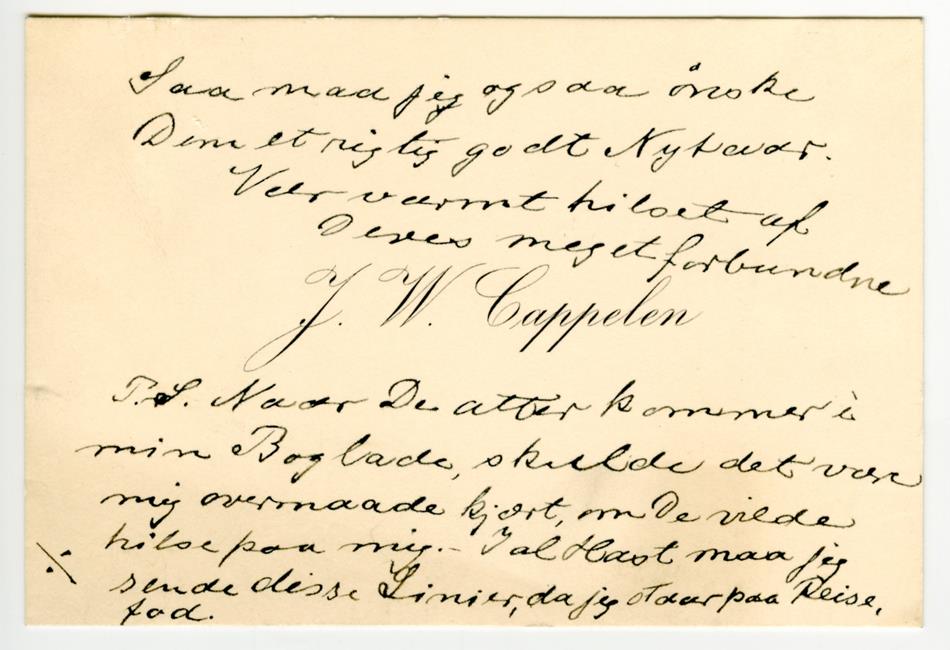 Saa maa jeg ogsaa ønske
Dem et rigtig godt Nytaar.
Vær varmt hilset af
Deres meget forbundne
J. W. Cappelen
P.S. Naar De atter kommer i
min Boglade, skulde det være
mig overmaade kjært, om De vilde
hilse paa mig. – I al Hast maa jeg
sende disse Linier, da jeg staar paa Reise,
fod.